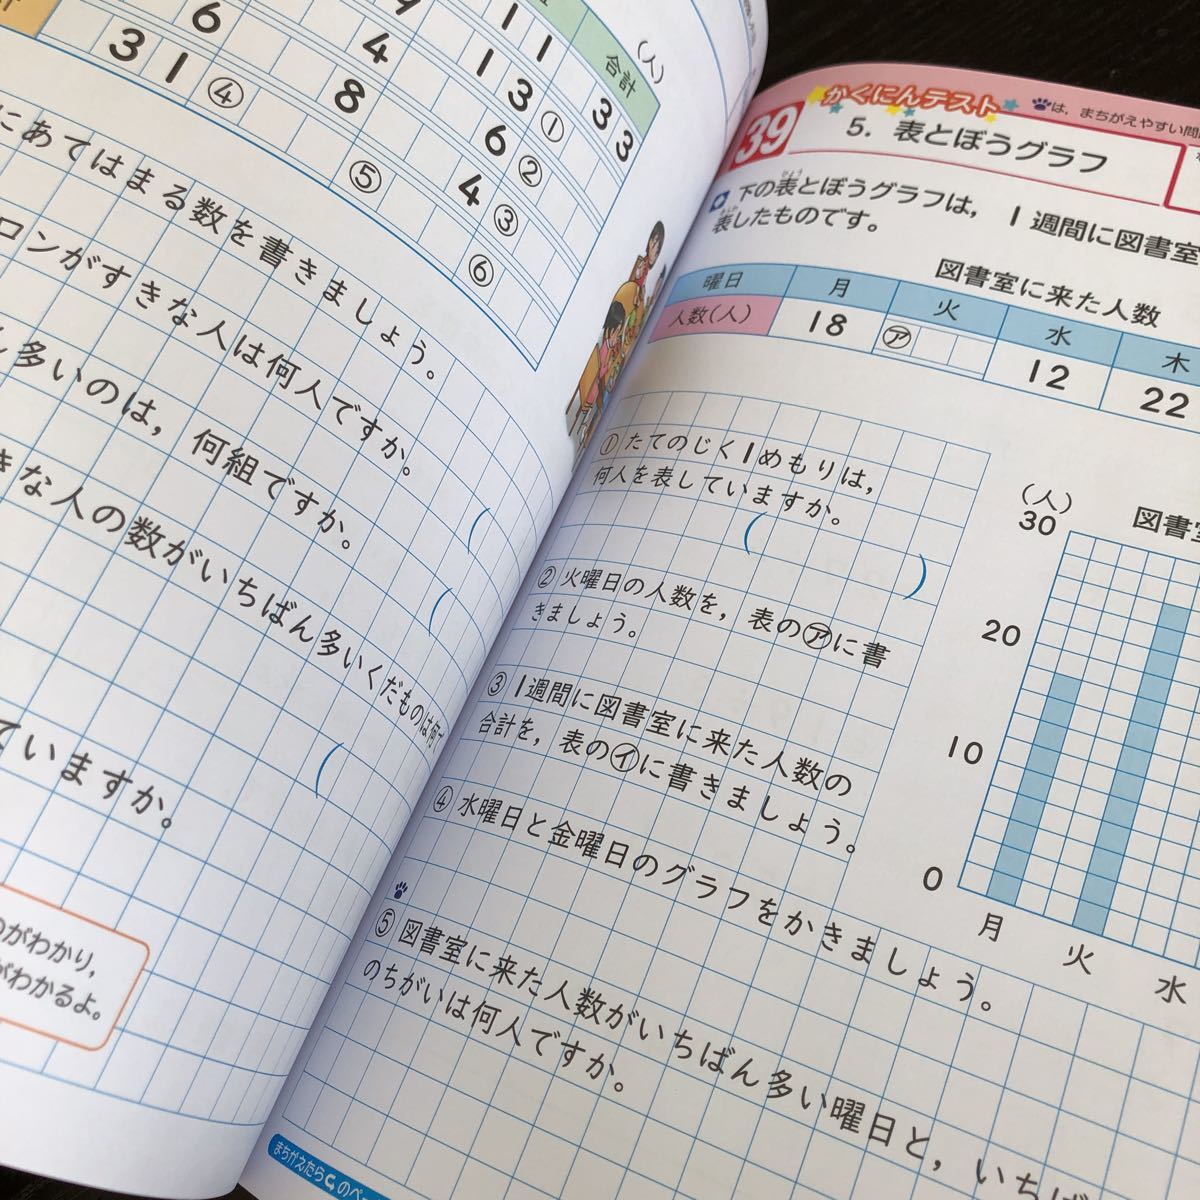 計
6
9
1
1
合計
(人)
4
1
3
①
3
3
3
1
④
8
6
②
⑤
4
③
⑥
にあてはまる数を書きましょう。
ロンがすきな人は何人ですか。
多いのは，何組ですか。
きな人の数がいちばん多いくだものは何
ていますか。
のがわかり，
がわかるよ。
かくにんテスト
は，まちがえやすい問
39
5．表とぼうグラフ
下の表とぼうグラフは，1週間に図書室
ひょう
表したものです。
あらわ
図書室に来た人数
曜日
月
火
水
木
人数(人)
18
㋐
12
22
① たてのじく1めもりは，
何人を表していますか。
(
)
② 火曜日の人数を，表の㋐に書
きましょう。
③ 1週間に図書室に来た人数の
合計を，表の㋑に書きましょう。
④ 水曜日と金曜日のグラフをかきましょう。
⑤ 図書室に来た人数がいちばん多い曜日と，いちば
のちがいは何人ですか。
(人)
図書
30
20
10
0
月
火
水
まちがえたら
のペ